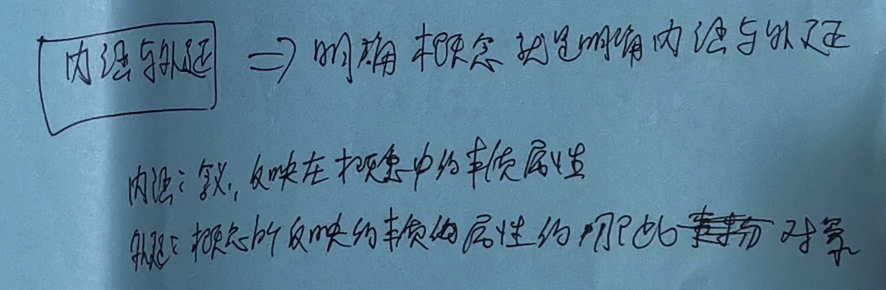 内涵与外延 ⇒ 明确概念就是明确内涵与外延
内涵：含义，反映在概念中的本质属性
外延：概念所反映的本质的属性的那些对象